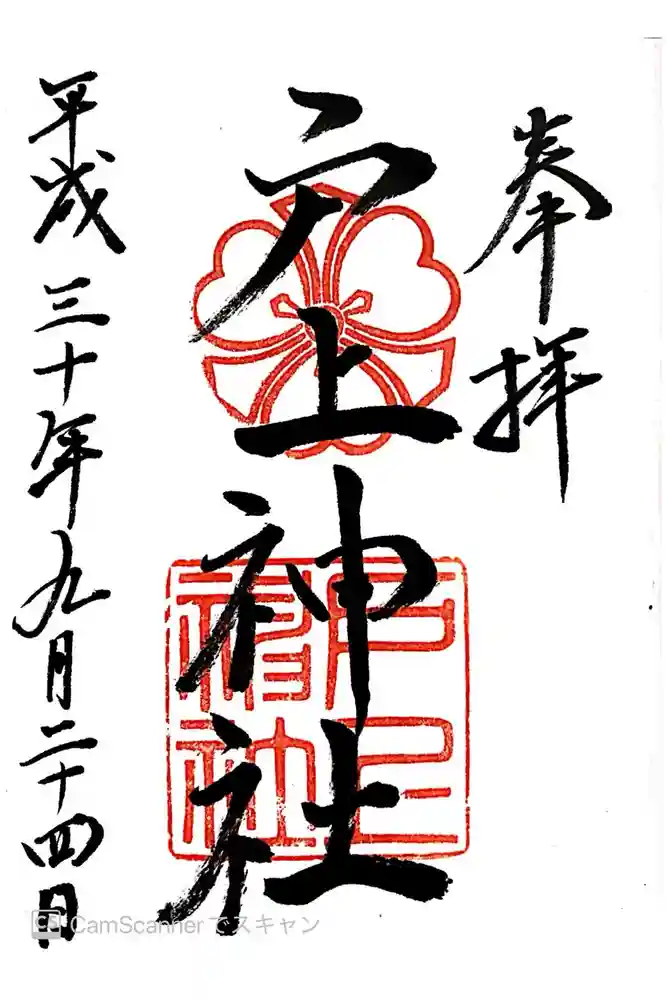 奉拝
戸上神社
戸上神社
平成三十年九月二十四日
CamScannerでスキャン